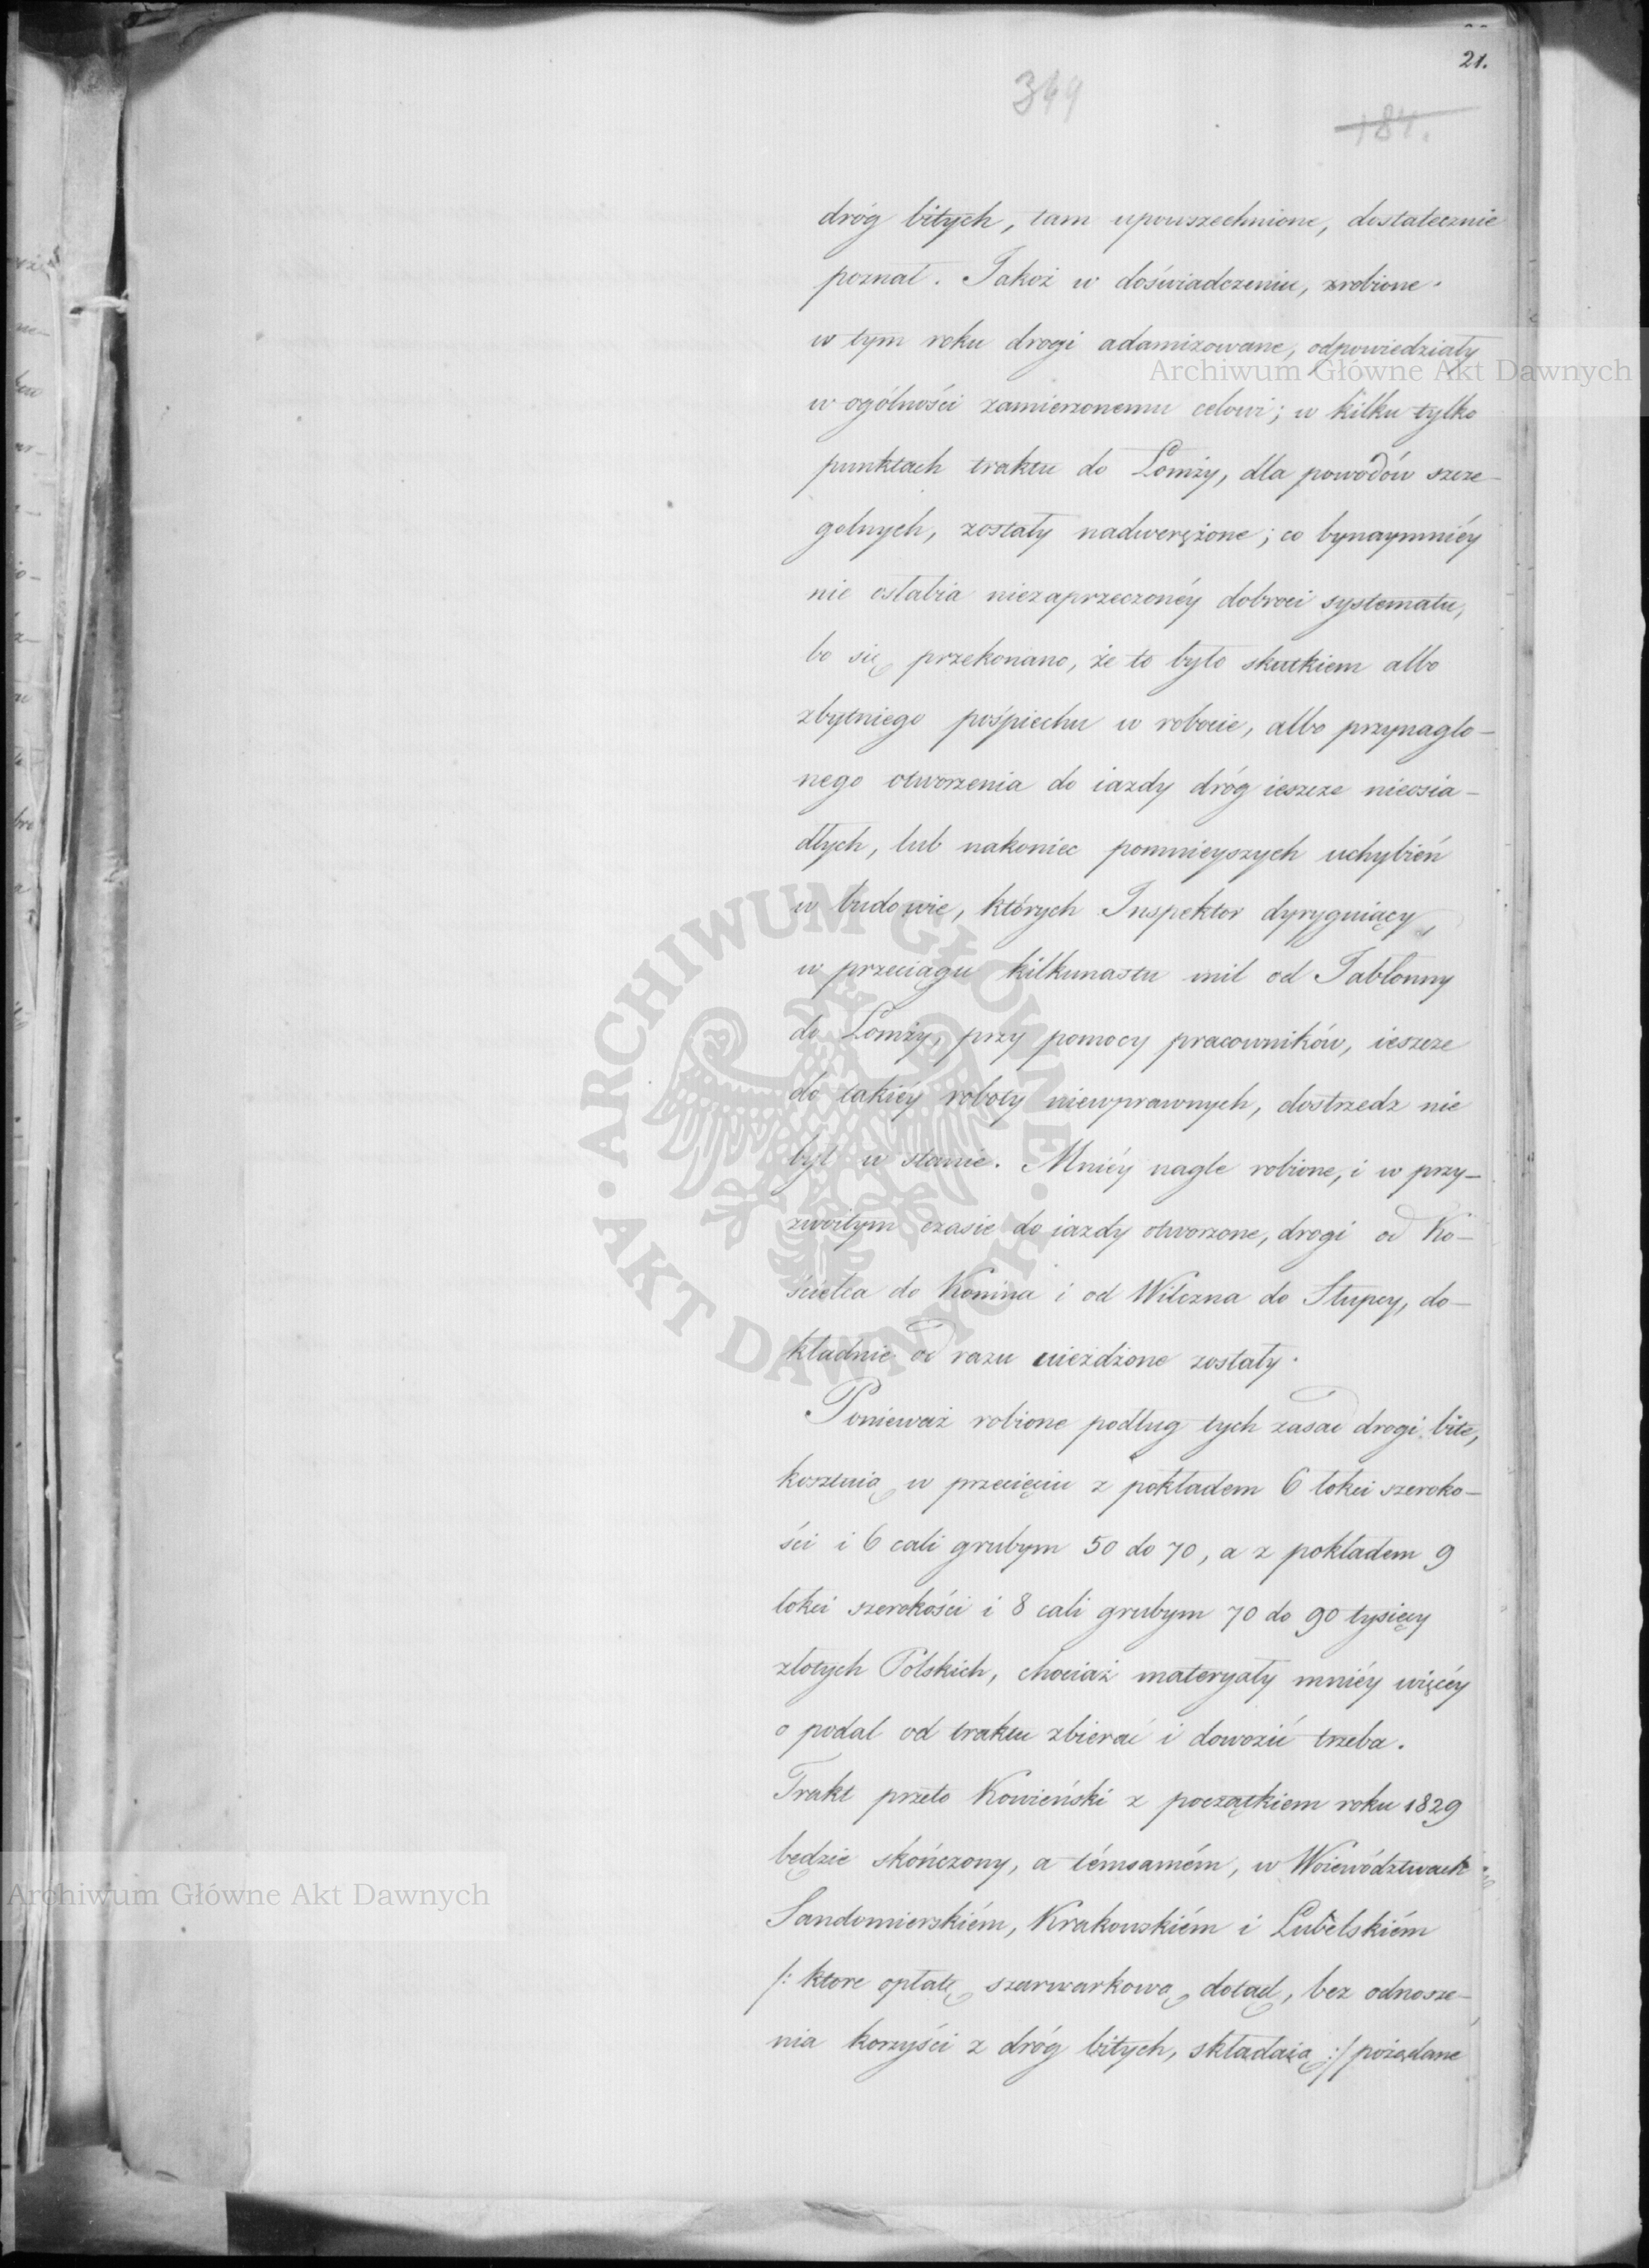 21.
349
181.
dróg bitych, tam upowszechnione, dostatecznie
poznał. Jakoż w doświadczeniu, zrobione
w tym roku drogi adamizowane, odpowiedziały
w ogólności zamierzonemu celowi; w kilku tylko
punktach traktu do Łomży, dla powodów szcze-
golnych, zostały nadwerężone; co bynaymniéy
nie osłabia niezaprzeczonéy dobroci systematu,
bo się przekonano, że to było skutkiem albo
zbytniego pośpiechu w robocie, albo przynaglo-
nego otworzenia do iazdy dróg ieszcze nieosia-
dłych, lub nakoniec pomnieyszych uchybień
w budowie, których Inspektor dyryguiący,
w przeciągu kilkunastu mil od Jabłonny
do Łomży, przy pomocy pracowników, ieszcze
do takiéy roboty niewprawnych, dostrzedz nie
był w stanie. Mniéy nagle robione, i w przy-
zwoitym czasie do iazdy otworzone, drogi od Ko-
ścielca do Konina i od Wilczna do Słupcy, do-
kładnie od razu uieżdżone zostały.
Ponieważ robione podług tych zasad drogi bite,
kosztuią w przecięciu z pokładem 6 łokci szeroko-
ści i 6 cali grubym 50 do 70, a z pokładem 9
łokci szerokości i 8 cali grubym 70 do 90 tysięcy
złotych Polskich, chociaż materyały mniéy więcéy
o podal od traktu zbierać i dowozić trzeba.
Trakt przeto Kowieński z początkiem roku 1829
będzie skończony, a témsamém, w Woiewództwach
Sandomierskiém, Krakowskiém i Lubelskiém
/: ktore opłatę szarwarkową dotąd, bez odnosze-
nia korzyści z dróg bitych, składaią :/ pożądane
Archiwum Główne Akt Dawnych
Archiwum Główne Akt Dawnych
ARCHIWUM GŁÓWNE
AKT DAWNYCH